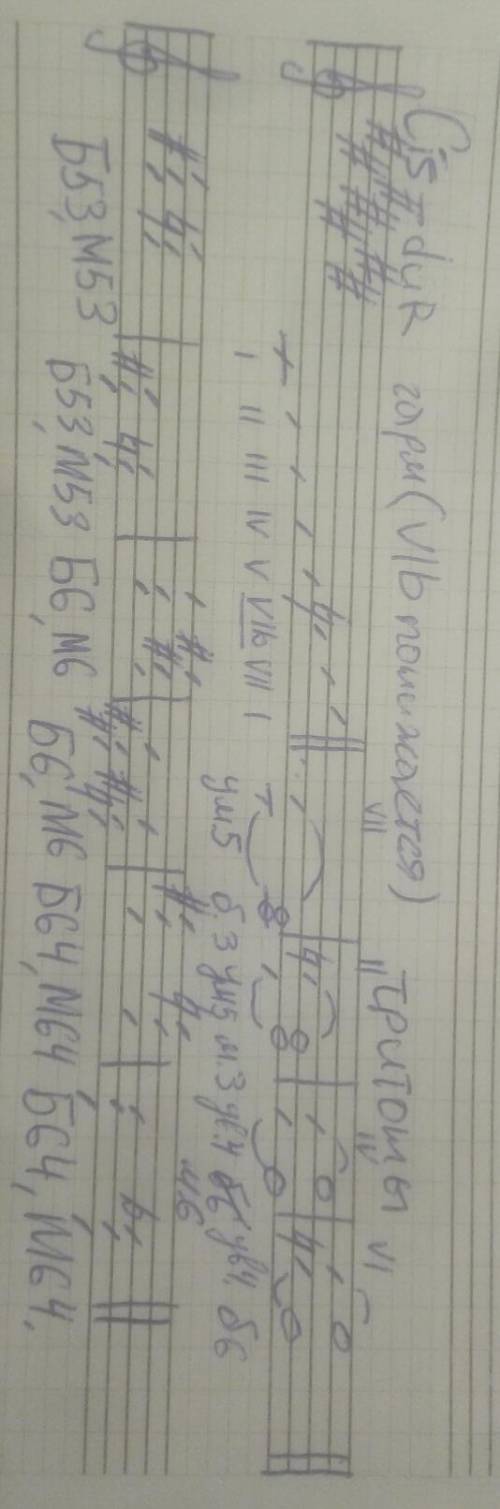 Cis-dur гарм (VIb понижается) тритоны
VII II IV VI
I II III IV V VIb VII I
ум5 б.3 ум5 м.3 ув.4 б6 ув4 б6
м6
Б53, М53 Б53, М53 Б6, М6 Б6, М6 Б64, М64 Б64, М64,